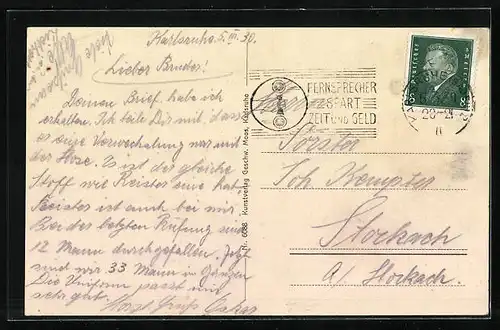 Karlsruhe 5. III. 30.
Lieber Bruder!
Deinen Brief habe ich
erhalten. Ich teile Dir mit, dass
es eine Verwechslung war mit
der Hose. Es ist der gleiche
Stoff wie Reister eine hat.
Reister ist auch bei mir.
Bei der letzten Prüfung sind
12 Mann durchgefallen. Jetzt
sind wir 33 Mann im Ganzen.
Die Uniform passt mir
sehr gut.
Herzl. Grüße
Nr. 6088 Kunstverlag Geschw. Moos, Karlsruhe
FERNSPRECHER
SPART
ZEIT UND GELD
20-21
8 Deutsches Reich 8
Förster
Joh. Kempter
Stockach
a/ Stockach.